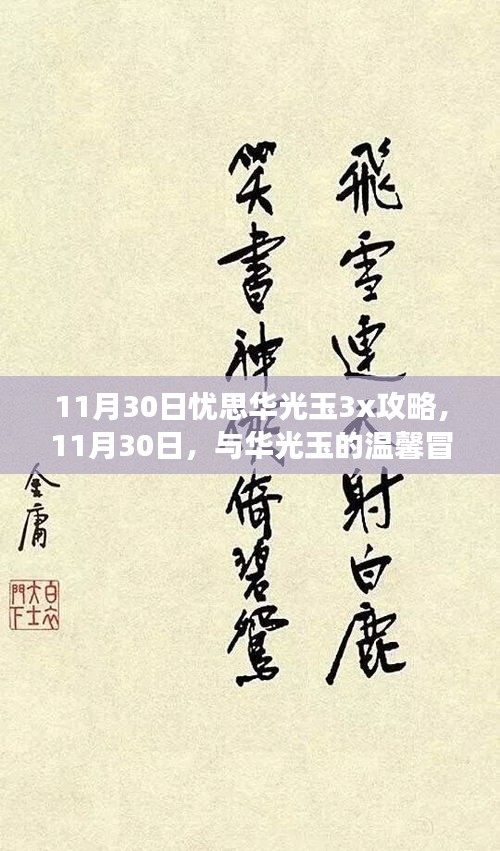 飛雪連射白鹿
笑書神倚碧鴛
金庸
白衣大士門下
11月30日忧思华光玉3x攻略,
11月30日，与华光玉的温馨冒